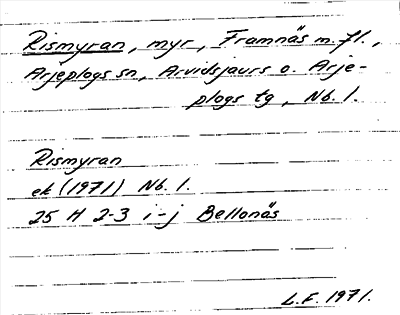 Rismyran, myr, Framnäs m.fl.,
Arjeplogs sn, Arvidsjaurs o. Arje-
plogs tg, Nb. l.
Rismyran
ek (1971) Nb. l.
25 H 2-3 i-j Bellonäs
L.F. 1971.